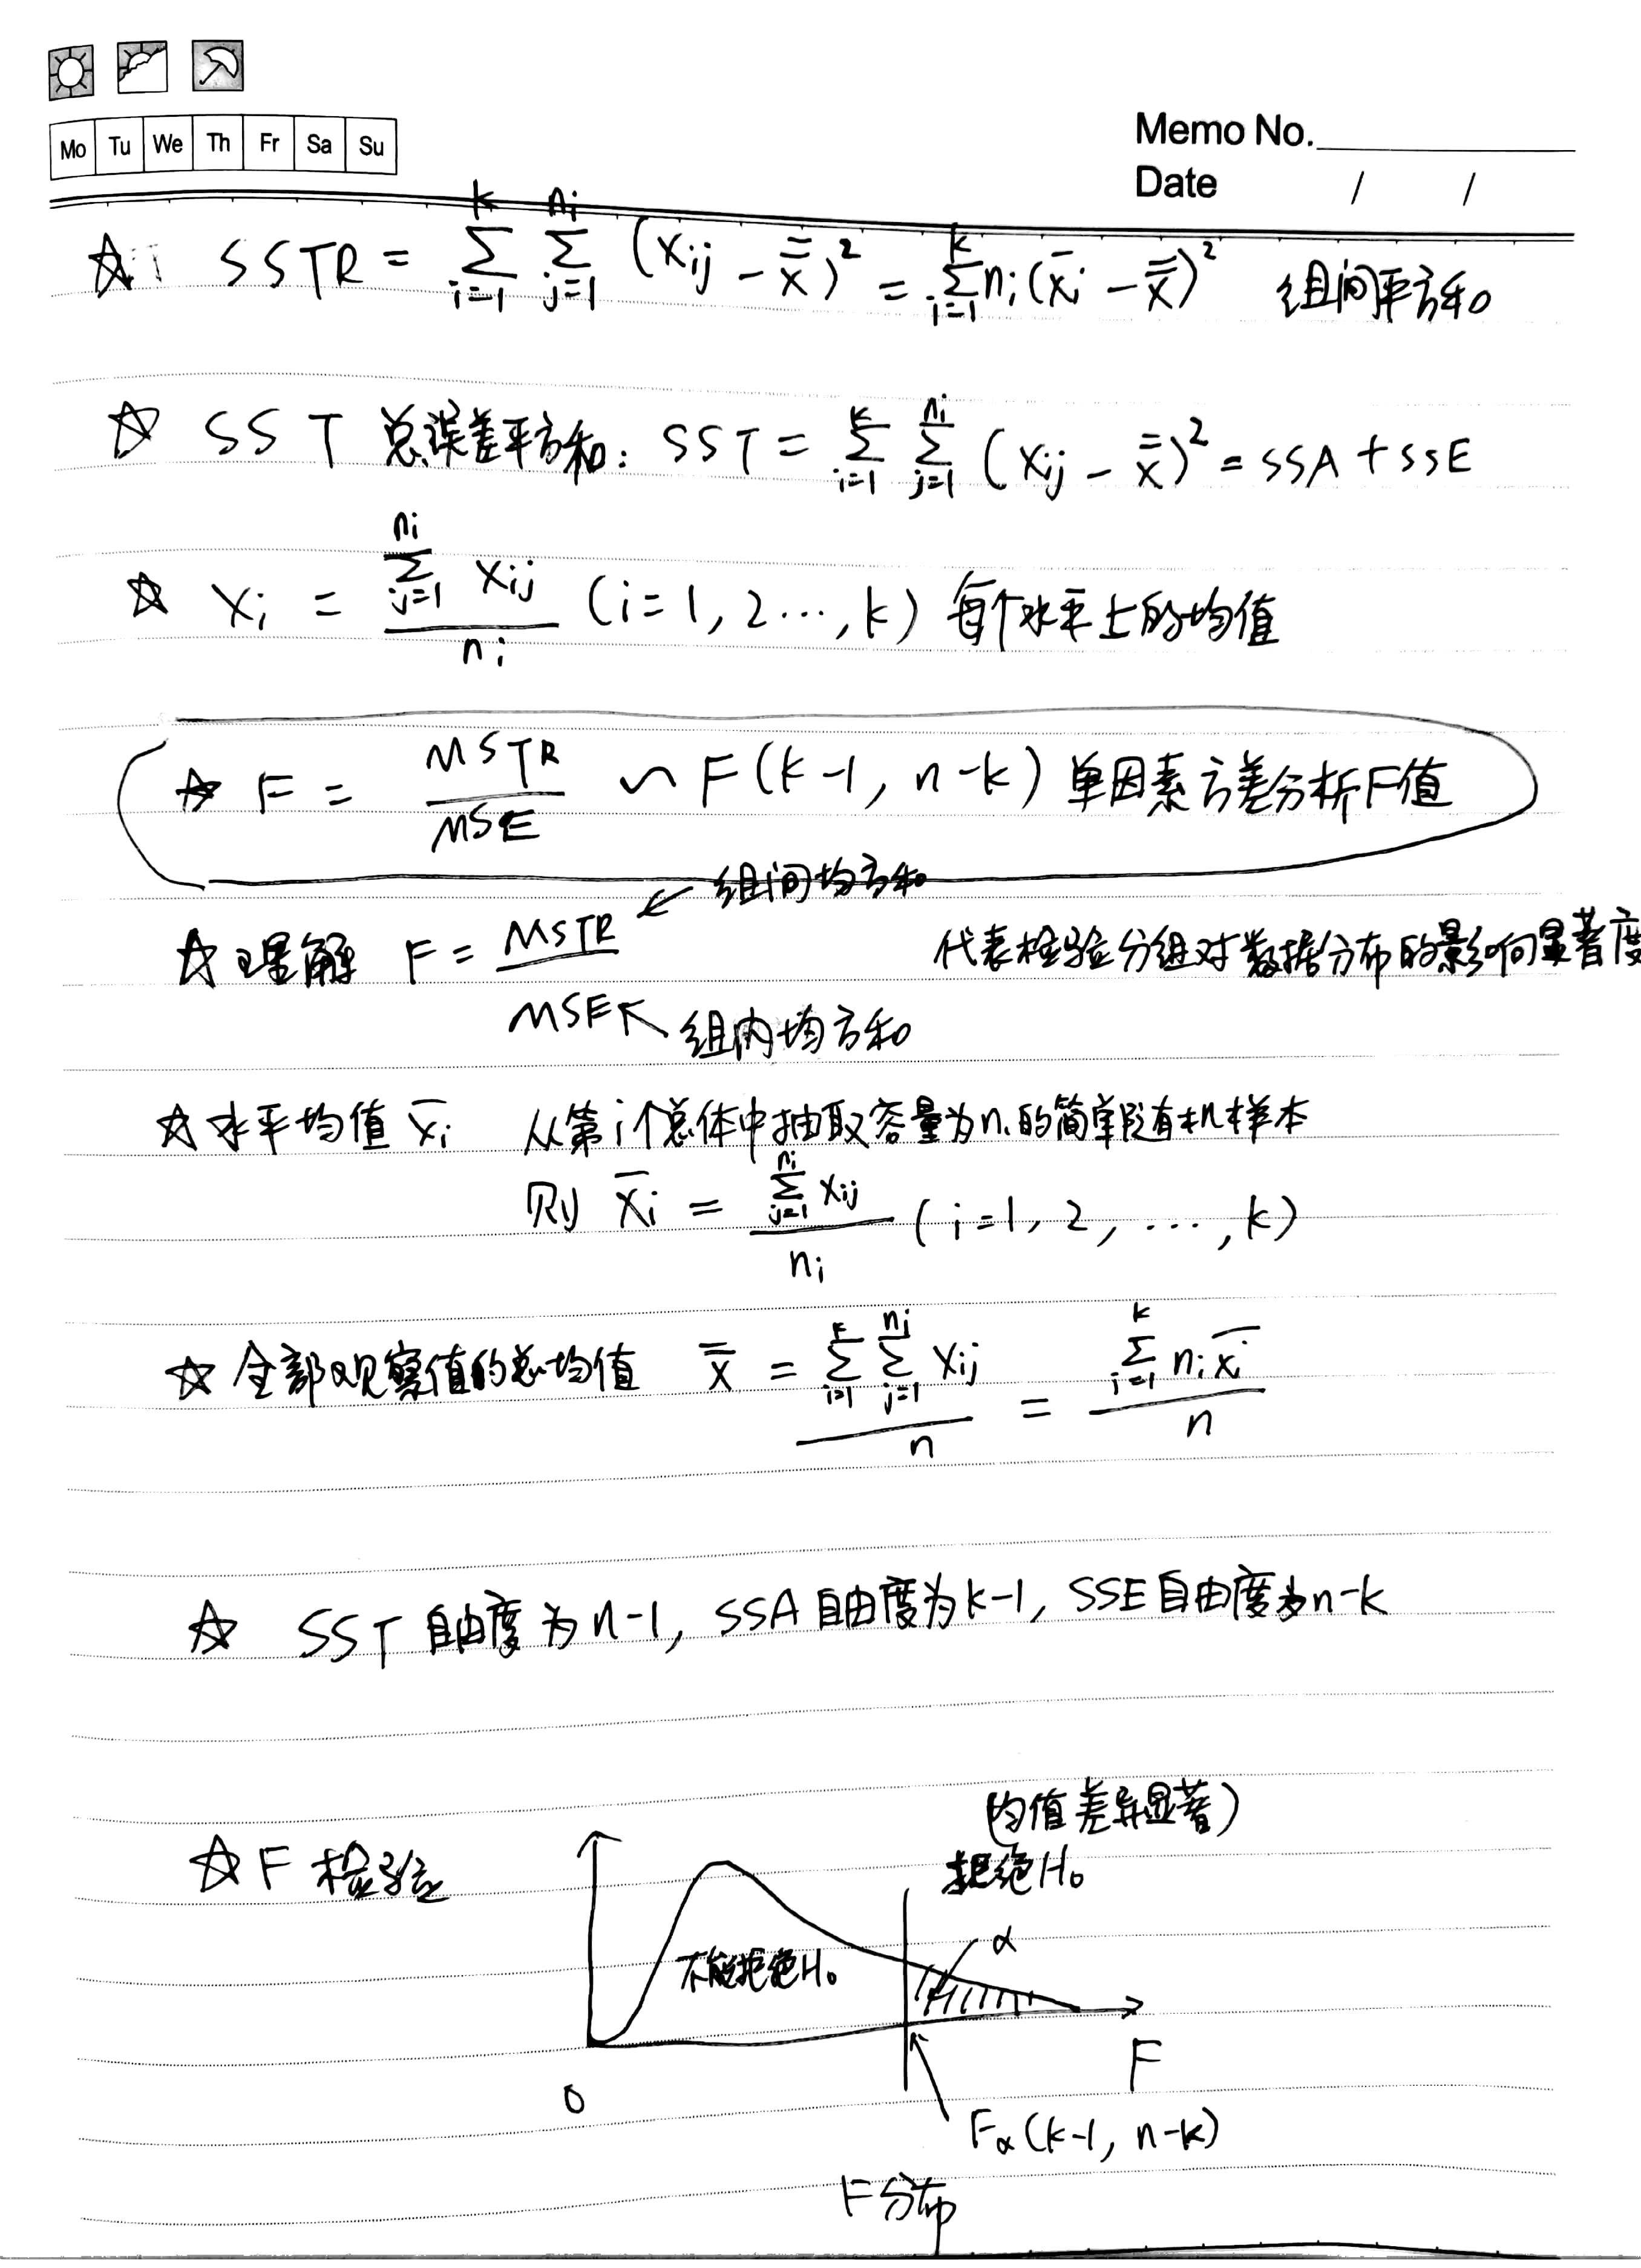 Mo Tu We Th Fr Sa Su
Memo No.
Date / /
☆ SSTR = \sum_{i=1}^{k} \sum_{j=1}^{n_i} (x_{ij} - \bar{\bar{x}})^2 = \sum_{i=1}^{k} n_i (\bar{x}_i - \bar{\bar{x}})^2 组间平方和
☆ SST 总误差平方和: SST = \sum_{i=1}^{k} \sum_{j=1}^{n_i} (x_{ij} - \bar{\bar{x}})^2 = SSA + SSE
☆ x_i = \frac{\sum_{j=1}^{n_i} x_{ij}}{n_i} (i=1, 2 ..., k) 每个水平上的均值
☆ F = \frac{MSTR}{MSE} ∽ F(k-1, n-k) 单因素方差分析F值
☆ 理解 F = \frac{MSTR}{MSE} ← 组间均方和
代表检验分组对数据分布的影响显著度
↖ 组内均方和
☆ 水平均值 \bar{x}_i 从第i个总体中抽取容量为n_i的简单随机样本
则 \bar{x}_i = \frac{\sum_{j=1}^{n_i} x_{ij}}{n_i} (i=1, 2, ..., k)
☆ 全部观察值的总均值 \bar{\bar{x}} = \frac{\sum_{i=1}^{k} \sum_{j=1}^{n_j} x_{ij}}{n} = \frac{\sum_{i=1}^{k} n_i \bar{x}_i}{n}
☆ SST 自由度为 n-1, SSA 自由度为 k-1, SSE 自由度为 n-k
☆ F 检验
(均值差异显著)
拒绝H₀
α
不能拒绝H₀
F
0
F_α (k-1, n-k)
F分布